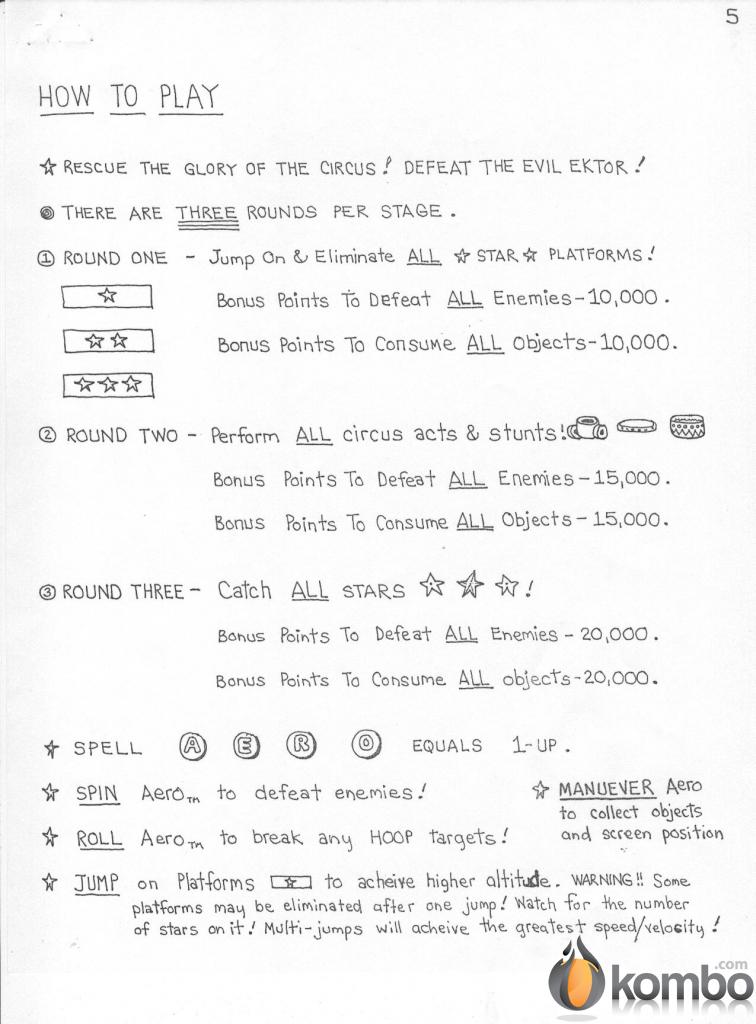 5
HOW TO PLAY
☆ RESCUE THE GLORY OF THE CIRCUS! DEFEAT THE EVIL EKTOR!
THERE ARE THREE ROUNDS PER STAGE.
① ROUND ONE - Jump On & Eliminate ALL ☆ STAR ☆ PLATFORMS!
Bonus Points To Defeat ALL Enemies-10,000.
Bonus Points To Consume ALL Objects-10,000.
② ROUND TWO - Perform ALL circus acts & stunts!
Bonus Points To Defeat ALL Enemies-15,000.
Bonus Points To Consume ALL Objects-15,000.
③ ROUND THREE - Catch ALL STARS ☆ ☆ ☆!
Bonus Points To Defeat ALL Enemies - 20,000.
Bonus Points To Consume ALL objects-20,000.
☆ SPELL A E R O EQUALS 1-UP.
☆ SPIN Aero TM to defeat enemies!
☆ ROLL Aero TM to break any HOOP targets!
☆ MANUEVER Aero
to collect objects
and screen position
☆ JUMP on Platforms ☆ to acheive higher altitude. WARNING!! Some
platforms may be eliminated after one jump! Watch for the number
of stars on it! Multi-jumps will acheive the greatest speed/velocity!
kombo.com